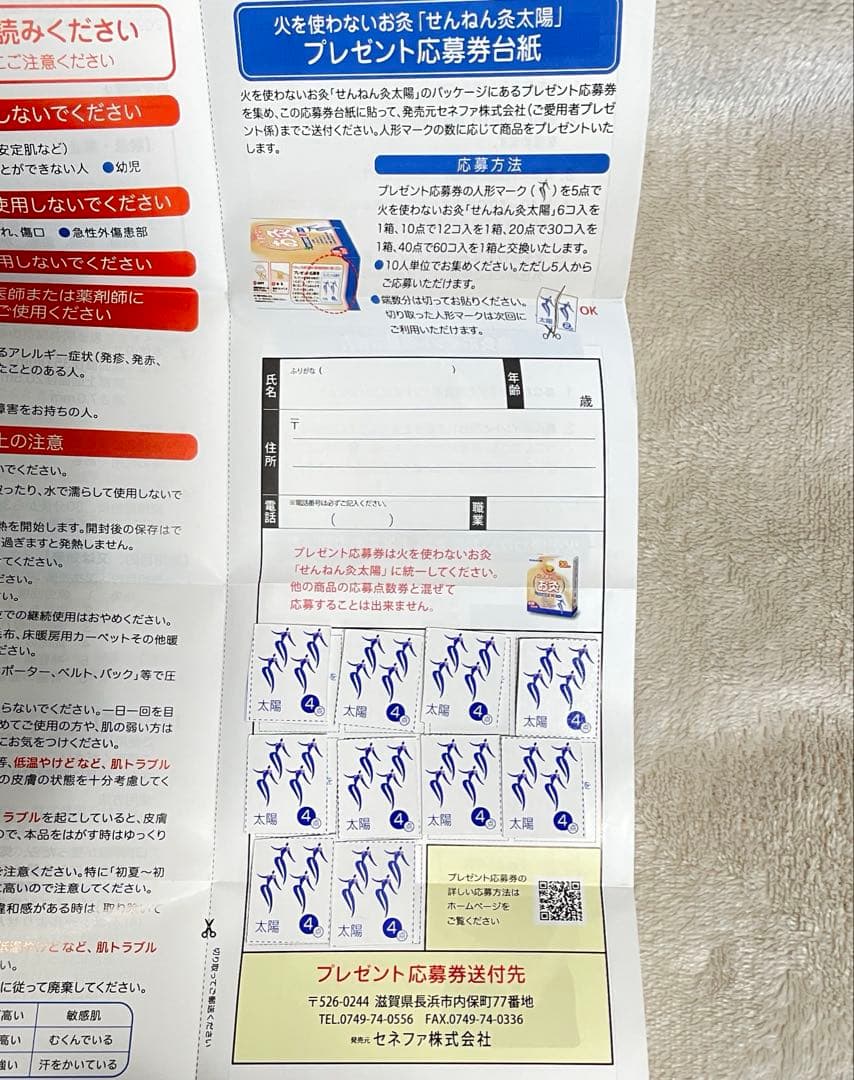 読みください
ご注意ください
しないでください
安定肌など)
とができない人 ●幼児
使用しないでください
れ、傷口 ●急性外傷患部
用しないでください
医師または薬剤師に
ご使用ください
るアレルギー症状(発疹、発赤、
たことのある人。
障害をお持ちの人。
上の注意
いでください。
ったり、水で濡らして使用しないで
熱を開始します。開封後の保存はで
過ぎますと発熱しません。
てください。
ださい。
い。
での継続使用はおやめください。
布、床暖房用カーペットその他暖
ポーター、ベルト、バック」等で圧
らないでください。一日一回を目
めてご使用の方や、肌の弱い方は
にお気をつけください。
等、低温やけどなど、肌トラブル
の皮膚の状態を十分考慮してく
ラブルを起こしていると、皮膚
ので、本品をはがす時はゆっくり
注意ください。特に「初夏〜初
高いので注意してください。
違和感がある時は、取り除いて
低温やけどなど、肌トラブル
い。
に従って廃棄してください。
高い 敏感肌
高い むくんでいる
強い 汗をかいている
切り取ってご郵送ください
火を使わないお灸「せんねん灸太陽」
プレゼント応募券台紙
火を使わないお灸「せんねん灸太陽」のパッケージにあるプレゼント応募券
を集め、この応募券台紙に貼って、発売元セネファ株式会社(ご愛用者プレゼ
ント係)までご送付ください。人形マークの数に応じて商品をプレゼントいた
します。
応募方法
プレゼント応募券の人形マーク( )を5点で
火を使わないお灸「せんねん灸太陽」6コ入を
1箱、10点で12コ入を1箱、20点で30コ入を
1箱、40点で60コ入を1箱と交換いたします。
●10人単位でお集めください。ただし5人から
ご応募いただけます。
●端数分は切ってお貼りください。
切り取った人形マークは次回に
ご利用いただけます。
太陽
OK
氏名 ふりがな( ) 年齢 歳
住所 〒
電話 ※電話番号は必ずご記入ください。 ( ) 職業
プレゼント応募券は火を使わないお灸
「せんねん灸太陽」に統一してください。
他の商品の応募点数券と混ぜて
応募することは出来ません。
お灸
太陽 4点 太陽 4点 太陽 4点 太陽 4点
太陽 4点 太陽 4点 太陽 4点 太陽 4点
太陽 4点 太陽 4点
プレゼント応募券の
詳しい応募方法は
ホームページを
ご覧ください
プレゼント応募券送付先
〒526-0244 滋賀県長浜市内保町77番地
TEL.0749-74-0556 FAX.0749-74-0336
発売元 セネファ株式会社